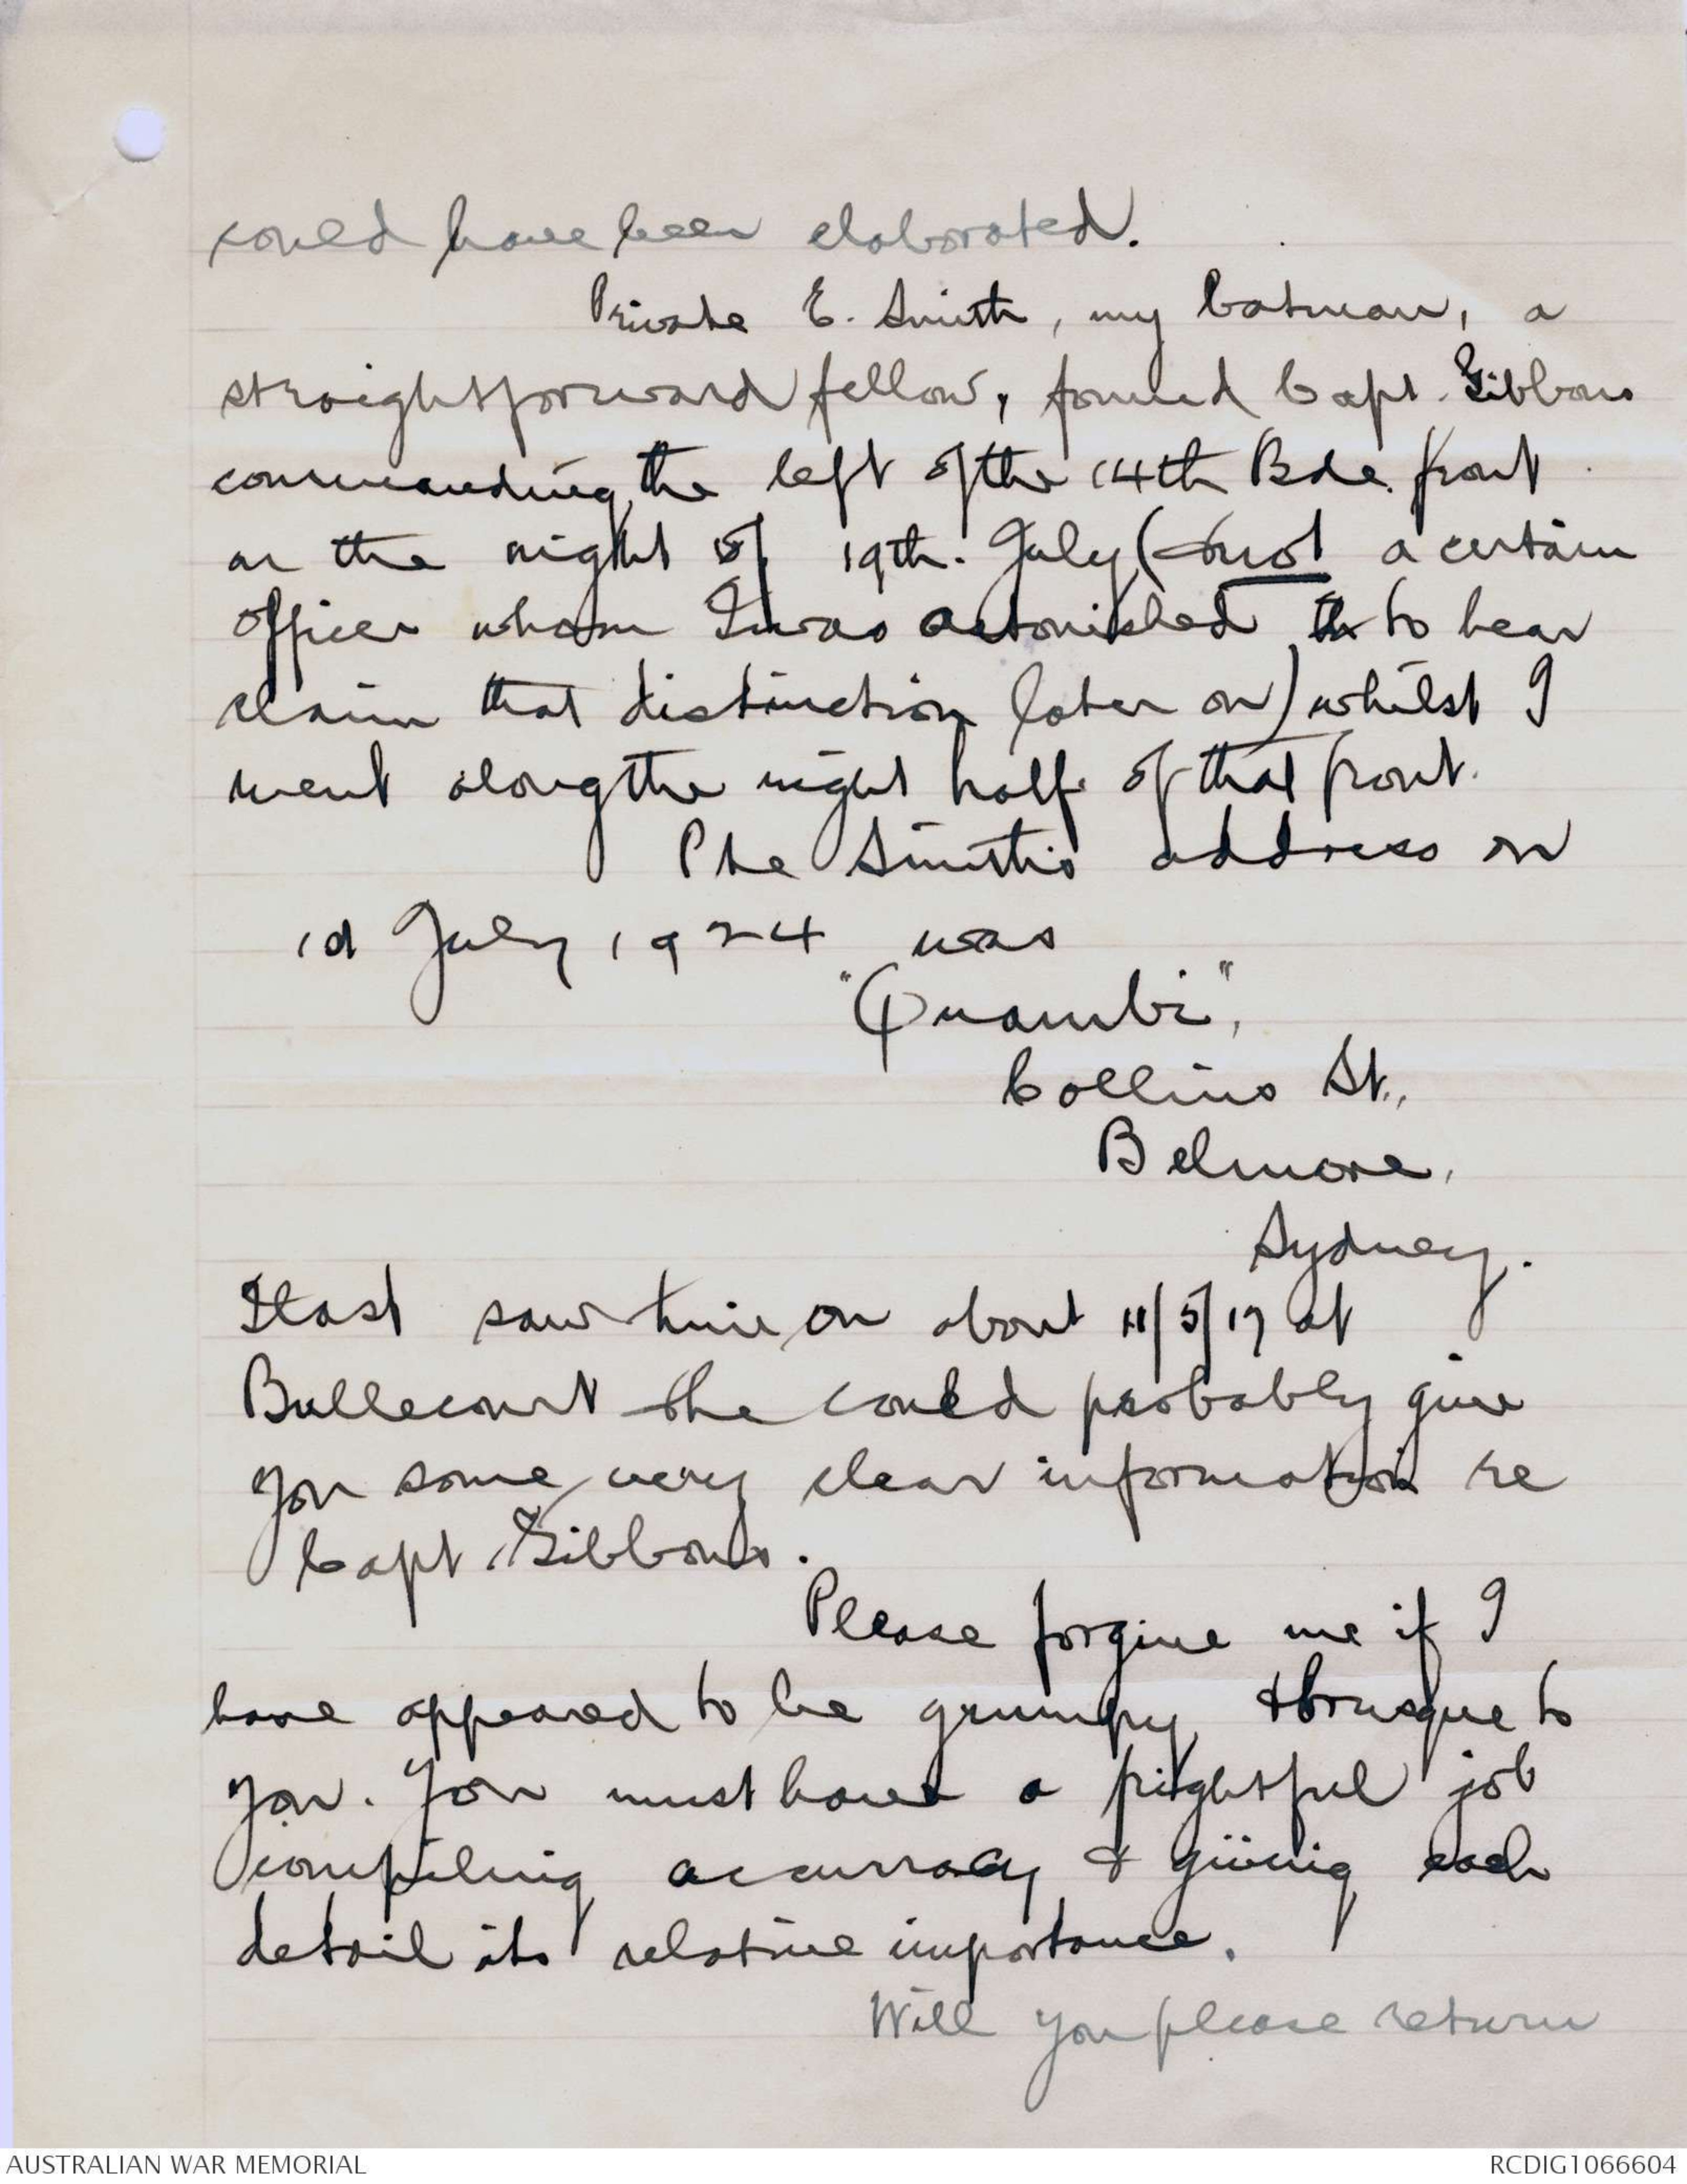 could have been elaborated.
Private E. Smith, my batman, a
straightforward fellow, found Capt. Gibbons
commanding the left of the 14th Bde. front
on the night of 19th. July (& not a certain
officer whom I was astonished to hear
claim that distinction later on) whilst I
went along the right half of that front.
Pte Smith's address on
1st July 1924 was
"Quambi",
Collins St.,
Belmore,
Sydney.
I last saw him on about 11/5/17 at
Bullecourt & he could probably give
you some very clear information re
Capt. Gibbons.
Please forgive me if I
have appeared to be grumpy & brusque to
you. You must have a frightful job
compiling accuracy & giving each
detail its relative importance.
Will you please return
AUSTRALIAN WAR MEMORIAL
RCDIG1066604